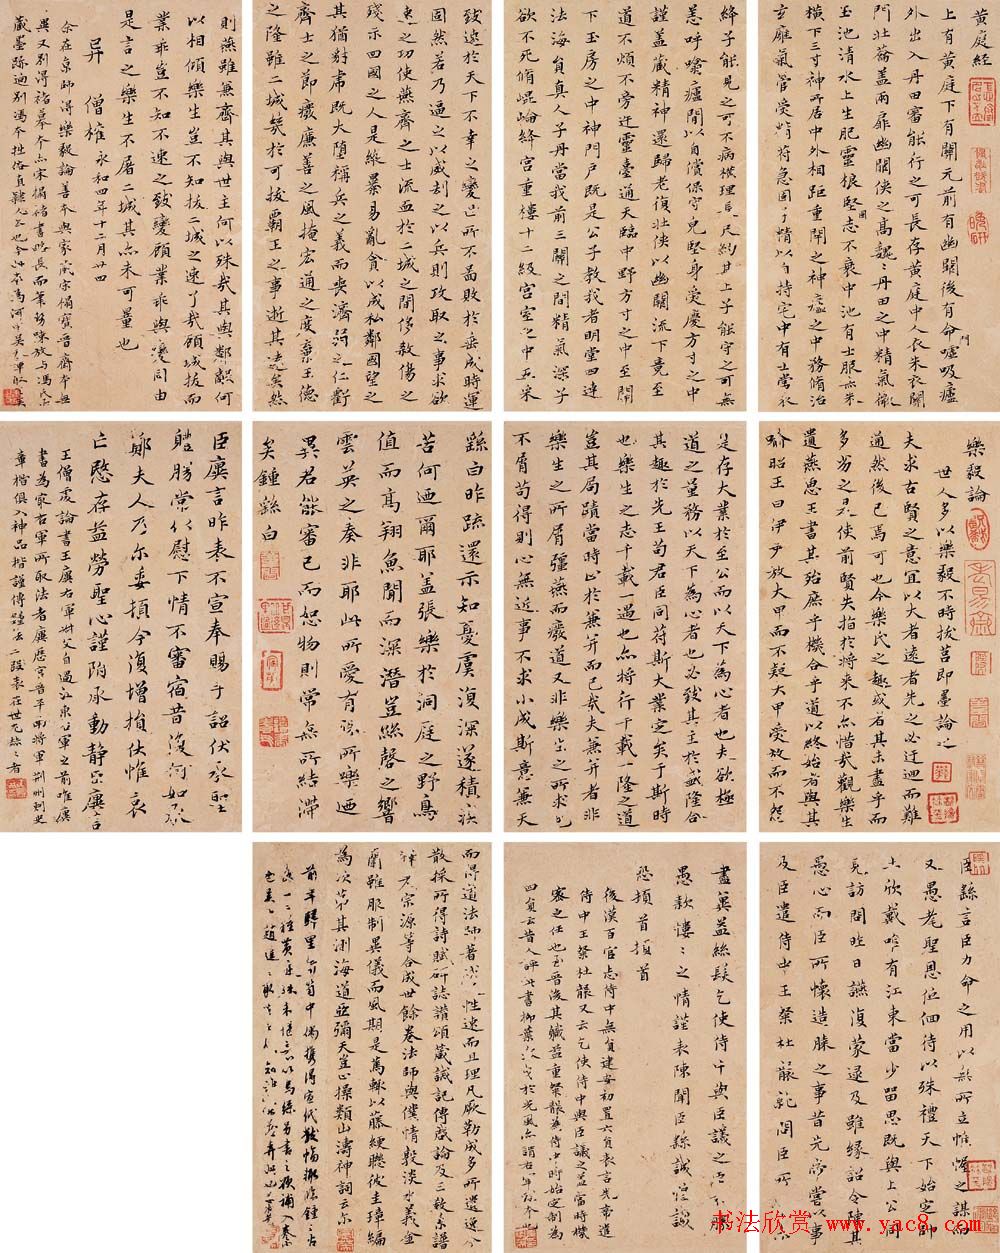 黃庭經
上有黃庭下有關元前有幽闕後有命噓吸廬
外出入丹田審能行之可長存黃庭中人衣朱衣關
門壯籥蓋兩扉幽闕俠之高巍巍丹田之中精氣微
玉池清水上生肥靈根堅志不衰中池有士服赤朱
橫下三寸神所居中外相距重閉之神廬之中務脩治
玄廱氣管受精符急固子精以自持宅中有士常衣
絳子能見之可不病橫理長尺約其上子能守之可無
恙呼噏廬間以自償保守兒堅身受慶方寸之中
謹蓋藏精神還歸老復壯俠以幽闕流下竟至
道不煩不旁迕靈臺通天臨中野方寸之中至關
下玉房之中神門戶既是公子教我者明堂四達
法海員真人子丹當我前三關之間精氣深子
欲不死脩崐崘絳宮重樓十二級宮室之中五采
致速於天下不幸之變世所不圖敗於垂成時運
固然若乃逼之以威刧之以兵則攻取之事求欲
速之功使燕齊之士流血於二城之間侈殺傷之
殘示四國之人是縱暴易亂貪以成私鄰國望之
其猶豺虎既大墮稱兵之義而喪濟弱之仁虧
齊士之節癈廉善之風掩宏通之度棄王德
之隆雖二城幾於可拔霸王之事逝其遠矣然
則燕雖兼齊其與世主何以殊哉其與鄰敵何
以相傾樂生豈不知拔二城之速了哉顧城拔而
業乖豈不知不速之致變顧業乖與變同由
是言之樂生不屠二城其亦未可量也
异 僧權 永和四年十二月廿四
余在京師得樂毅論善本與家藏宋搨寶晉齋本無
異又別得褚摹本
樂毅論
世人多以樂毅不時拔莒即墨論之
夫求古賢之意宜以大者遠者先之必迂迴而難
通然後已焉可也今樂氏之趣或者其未盡乎而
多劣之是使前賢失指於將來不亦惜哉觀樂生
遺燕惠王書其殆庶乎機合乎道以終始者與其
喻昭王曰伊尹放大甲而不疑大甲受放而不怨
是存大業於至公而以天下為心者也夫欲極
道之量務以天下為心者也必致其主於盛隆合
其趣於先王苟君臣同符斯大業定矣于斯時
也樂生之志千載一遇也亦將行千載一隆之道
豈其局蹟當時止於兼并而已哉夫兼并者非
樂生之所屑彊燕而癈道又非樂生之所求也
不屑苟得則心無近事不求小成斯意兼天
繇白昨疏還示知憂虞復深遂積疾
苦何迺爾耶蓋張樂於洞庭之野鳥
值而高翔魚聞而深潛豈絲磬之響
雲英之奏非耶此所愛有殊所樂迺
異君能審己而恕物則常無所結滯
矣鍾繇白
臣廙言昨表不宣奉賜手詔伏承聖
體勝常以慰下情不審宿昔復何如承
鄭夫人乃爾委頓今復增損伏惟哀
亡愍存益勞聖心謹附承動靜臣廙言
王僧虔論書王廙右軍叔父自過江東右軍之前唯廙
書為最右軍所取法者廙歷官晉平南將軍荊州刺史
章楷俱入神品楷謹傳鍾法二張表在世無終之者
臣繇言臣力命之用以無所立帷幄之謀而
又愚耄聖恩位同侍以殊禮天下始定師
土欣戴唯有江東當少留思既與上公同
見訪問昨日讌復蒙逮及雖緣詔令陳其
愚心而臣所懷造膝之事昔先帝嘗以事
及臣遣侍中王粲杜襲就問臣所
盡冀益絲髮乞使侍中與臣議之臣不勝
愚款慺慺之情謹表陳聞臣繇誠惶誠
恐頓首頓首
後漢百官志侍中無員建安初置六員表言先帝遣
侍中王粲杜襲又云乞使侍中與臣議之益當時機
密之任也至晉後其職益重粲襲為侍中時始定制為
而得道法師著述 性速而且理凡厥勒成多所遺逸今
散採所得詩賦研誌讚頌箴誡記傳啟論及三教系譜
禪老宗源等合成世餘卷法師與僕情敦淡水義金
蘭雖服制異儀而風期是篤輒以藤綆聰彼圭璋編
為次第其測海道亞彌天豈止操類山濤神詞云爾
书法欣赏 www.yac8.com